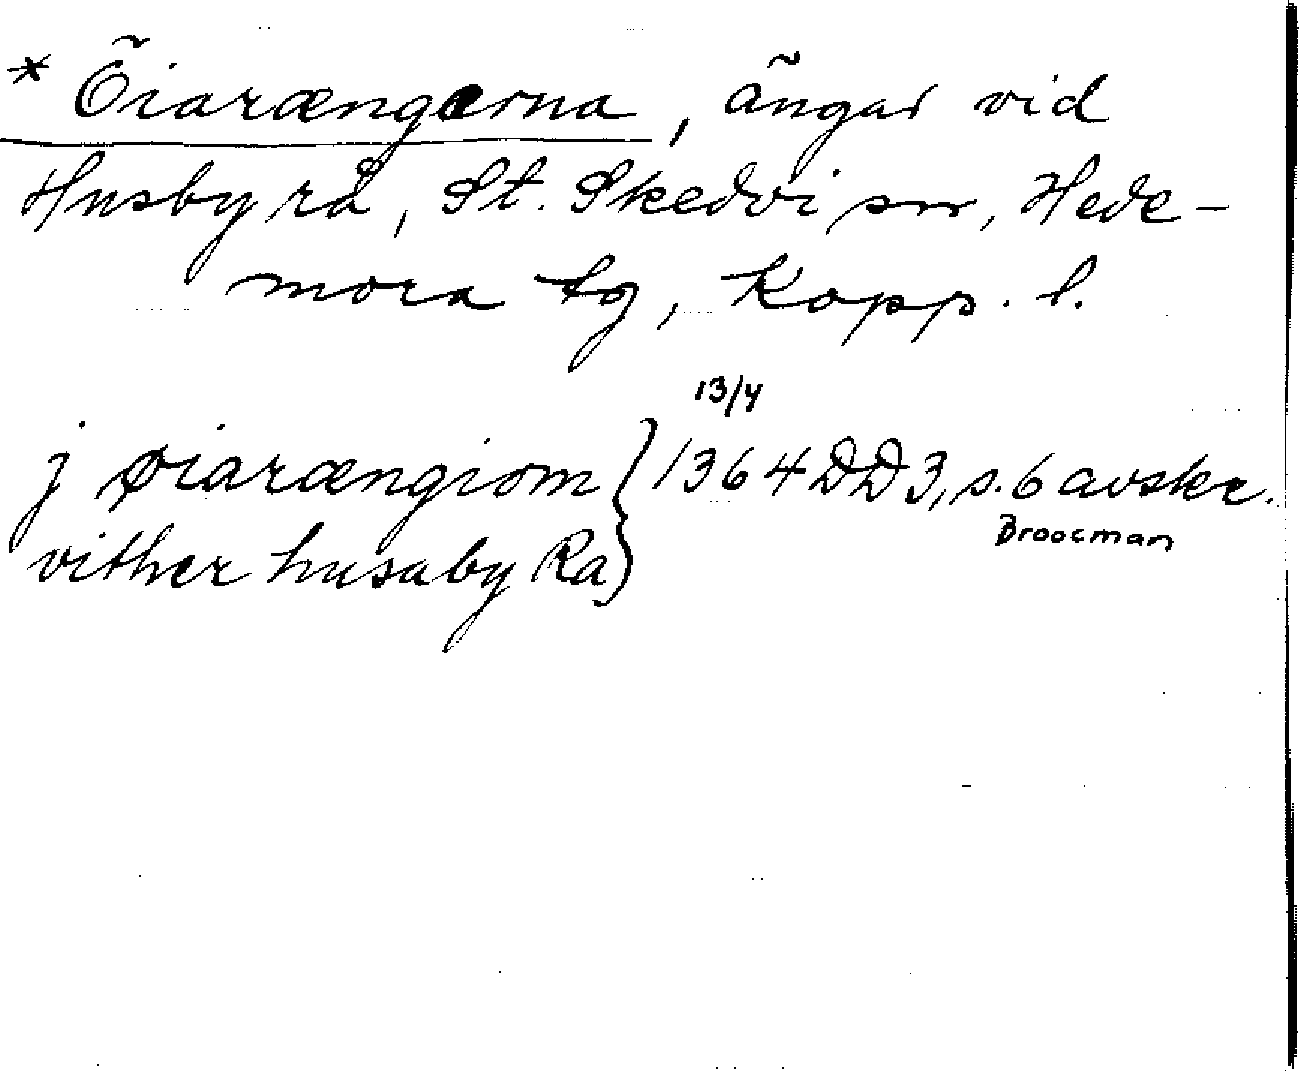 * Öiarængerna, ängar vid
Husby rå, St. Skedvi sn, Hede-
mora tg, Kopp. l.
13/4
j øiarængiom } 1364 DD 3, s. 6 avskr.
Broocman
vither husaby Ra